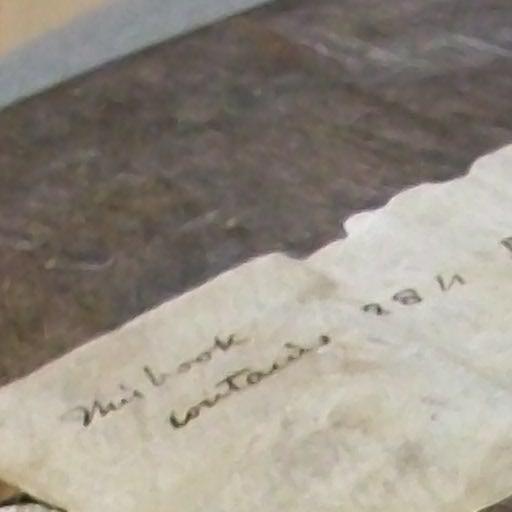 This book
contains 284